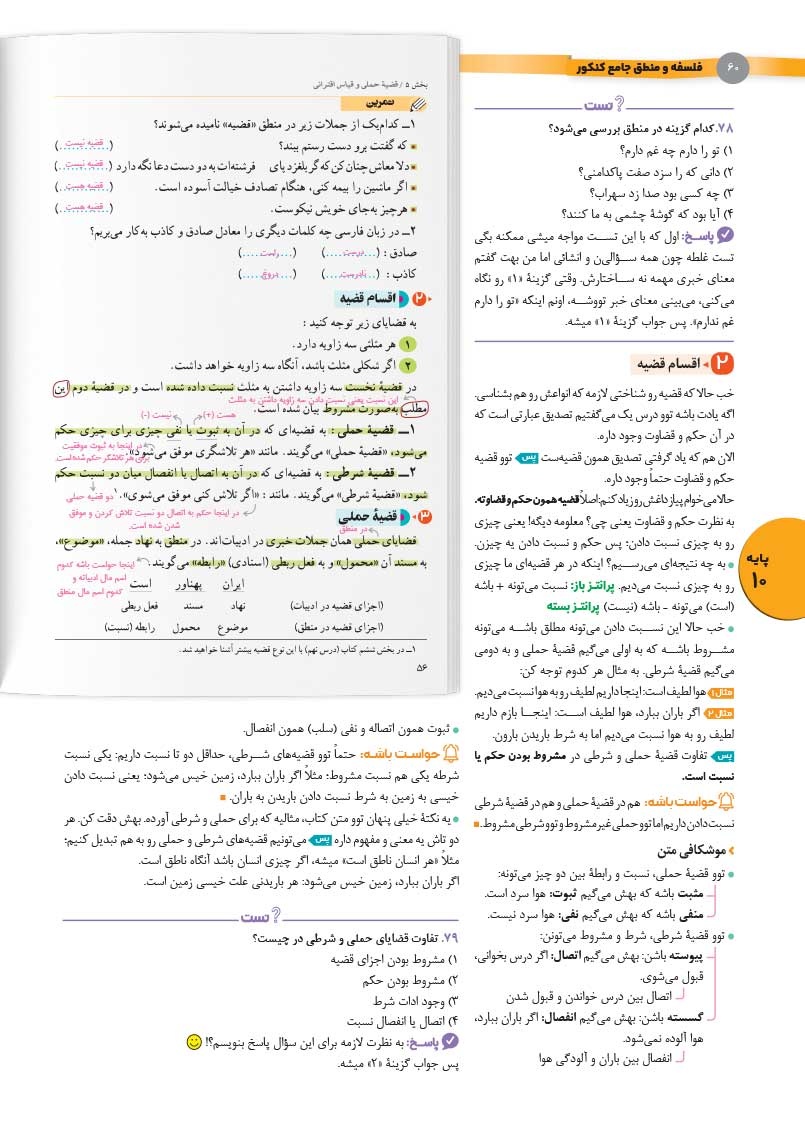 ۶۰
فلسفه و منطق جامع کنکور
تست
۷۸. کدام گزینه در منطق بررسی می‌شود؟
۱) تو را دارم چه غم دارم؟
۲) دانی که را سزد صفت پاکدامنی؟
۳) چه کسی بود صدا زد سهراب؟
۴) آیا بود که گوشهٔ چشمی به ما کنند؟
پاسخ: اول که با این تست مواجه میشی ممکنه بگی
تست غلطه چون همه سؤالی‌ن و انشائی اما من بهت گفتم
معنای خبری مهمه نه ساختارش. وقتی گزینهٔ «۱» رو نگاه
می‌کنی، می‌بینی معنای خبر تووشه، اونم اینکه «تو را دارم
غم ندارم». پس جواب گزینهٔ «۱» میشه.
۲ اقسام قضیه
خب حالا که قضیه رو شناختی لازمه که انواعش رو هم بشناسی.
اگه یادت باشه توو درس یک می‌گفتیم تصدیق عبارتی است که
در آن حکم و قضاوت وجود داره.
الان هم که یاد گرفتی تصدیق همون قضیه‌ست پس توو قضیه
حکم و قضاوت حتماً وجود داره.
حالا می‌خوام پیاز داغش رو زیاد کنم: اصلاً قضیه همون حکم و قضاوته.
به نظرت حکم و قضاوت یعنی چی؟ معلومه دیگه! یعنی چیزی
رو به چیزی نسبت دادن؛ پس حکم و نسبت دادن یه چیزن.
• به چه نتیجه‌ای می‌رسیم؟ اینکه در هر قضیه‌ای ما چیزی
رو به چیزی نسبت می‌دیم. پرانتز باز: نسبت می‌تونه + باشه
(است) می‌تونه - باشه (نیست) پرانتز بسته
• خب حالا این نسبت دادن می‌تونه مطلق باشه می‌تونه
مشروط باشه که به اولی می‌گیم قضیهٔ حملی و به دومی
می‌گیم قضیهٔ شرطی. به مثال هر کدوم توجه کن:
مثال ۱ هوا لطیف است: اینجا داریم لطیف رو به هوا نسبت می‌دیم.
مثال ۲ اگر باران ببارد، هوا لطیف است: اینجا بازم داریم
لطیف رو به هوا نسبت می‌دیم اما به شرط باریدن بارون.
پس تفاوت قضیهٔ حملی و شرطی در مشروط بودن حکم یا
نسبت است.
حواست باشه: هم در قضیهٔ حملی و هم در قضیهٔ شرطی
نسبت دادن داریم اما توو حملی غیر مشروط و توو شرطی مشروط.
موشکافی متن
• توو قضیهٔ حملی، نسبت و رابطهٔ بین دو چیز می‌تونه:
مثبت باشه که بهش می‌گیم ثبوت: هوا سرد است.
منفی باشه که بهش می‌گیم نفی: هوا سرد نیست.
• توو قضیهٔ شرطی، شرط و مشروط می‌تونن:
پیوسته باشن: بهش می‌گیم اتصال: اگر درس بخوانی،
قبول می‌شوی.
اتصال بین درس خواندن و قبول شدن
گسسته باشن: بهش می‌گیم انفصال: اگر باران ببارد،
هوا آلوده نمی‌شود.
انفصال بین باران و آلودگی هوا
پایه
۱۰
بخش ۵ / قضیهٔ حملی و قیاس اقترانی
تمرین
۱ــ کدام‌یک از جملات زیر در منطق «قضیه» نامیده می‌شوند؟
که گفتت برو دست رستم ببند؟ (قضیه نیست)
دلا معاش چنان کن که گر بلغزد پای فرشته‌ات به دو دست دعا نگه دارد (قضیه نیست)
اگر ماشین را بیمه کنی، هنگام تصادف خیالت آسوده است. (قضیه هست)
هر چیز به‌جای خویش نیکوست. (قضیه هست)
۲ــ در زبان فارسی چه کلمات دیگری را معادل صادق و کاذب به‌کار می‌بریم؟
صادق : (درست) (راست)
کاذب : (نادرست) (دروغ)
۲ اقسام قضیه
به قضایای زیر توجه کنید :
۱ هر مثلثی سه زاویه دارد.
۲ اگر شکلی مثلث باشد، آنگاه سه زاویه خواهد داشت.
در قضیهٔ نخست سه زاویه داشتن به مثلث نسبت داده شده است و در قضیهٔ دوم این
این نسبت یعنی نسبت دادن سه زاویه داشتن به مثلث
مطلب به‌صورت مشروط بیان شده است.
هست (+) نیست (-)
۱ــ قضیهٔ حملی : به قضیه‌ای که در آن به ثبوت یا نفی چیزی برای چیزی حکم
می‌شود، «قضیهٔ حملی» می‌گویند. مانند «هر تلاشگری موفق می‌شود».
در اینجا به ثبوت موفقیت
برای هر تلاشگر حکم شده‌است.
۲ــ قضیهٔ شرطی : به قضیه‌ای که در آن به اتصال یا انفصال میان دو نسبت حکم
شود، «قضیهٔ شرطی» می‌گویند. مانند : «اگر تلاش کنی موفق می‌شوی».۱
دو قضیه حملی
در اینجا حکم به اتصال دو نسبت تلاش کردن و موفق
شدن شده است.
۳ قضیهٔ حملی
در منطق
قضایای حملی همان جملات خبری در ادبیات‌اند. در منطق به نهاد جمله، «موضوع»،
به مسند آن «محمول» و به فعل ربطی (اسنادی) «رابطه» می‌گویند.
اینجا حواست باشه کدوم
اسم مال ادبیاته و
کدوم اسم مال منطق
ایران پهناور است
(اجزای قضیه در ادبیات) نهاد مسند فعل ربطی
(اجزای قضیه در منطق) موضوع محمول رابطه (نسبت)
۱ــ در بخش ششم کتاب (درس نهم) با این نوع قضیه بیشتر آشنا خواهید شد.
۵۶
• ثبوت همون اتصاله و نفی (سلب) همون انفصال.
حواست باشه: حتماً توو قضیه‌های شرطی، حداقل دو تا نسبت داریم: یکی نسبت
شرطه یکی هم نسبت مشروط؛ مثلاً اگر باران ببارد، زمین خیس می‌شود؛ یعنی نسبت دادن
خیسی به زمین به شرط نسبت دادن باریدن به باران.
• یه نکتهٔ خیلی پنهان توو متن کتاب، مثالیه که برای حملی و شرطی آورده. بهش دقت کن. هر
دو تاش یه معنی و مفهوم داره پس می‌تونیم قضیه‌های شرطی و حملی رو به هم تبدیل کنیم؛
مثلاً «هر انسان ناطق است» میشه، اگر چیزی انسان باشد آنگاه ناطق است.
اگر باران ببارد، زمین خیس می‌شود: هر باریدنی علت خیسی زمین است.
تست
۷۹. تفاوت قضایای حملی و شرطی در چیست؟
۱) مشروط بودن اجزای قضیه
۲) مشروط بودن حکم
۳) وجود ادات شرط
۴) اتصال یا انفصال نسبت
پاسخ: به نظرت لازمه برای این سؤال پاسخ بنویسم؟!
پس جواب گزینهٔ «۲» میشه.